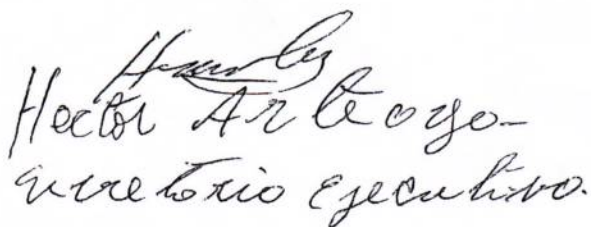 Hector Arteaga-
secretario ejecutivo.